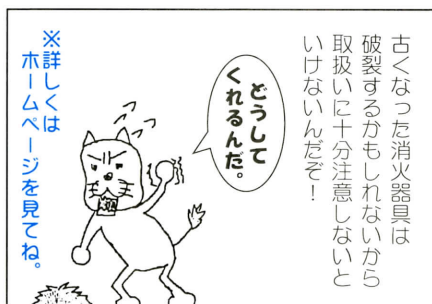 古くなった消火器具は
破裂するかもしれないから
取扱いに十分注意しないと
いけないんだぞ！
どうして
くれるんだ。
※詳しくは
ホームページを見てね。